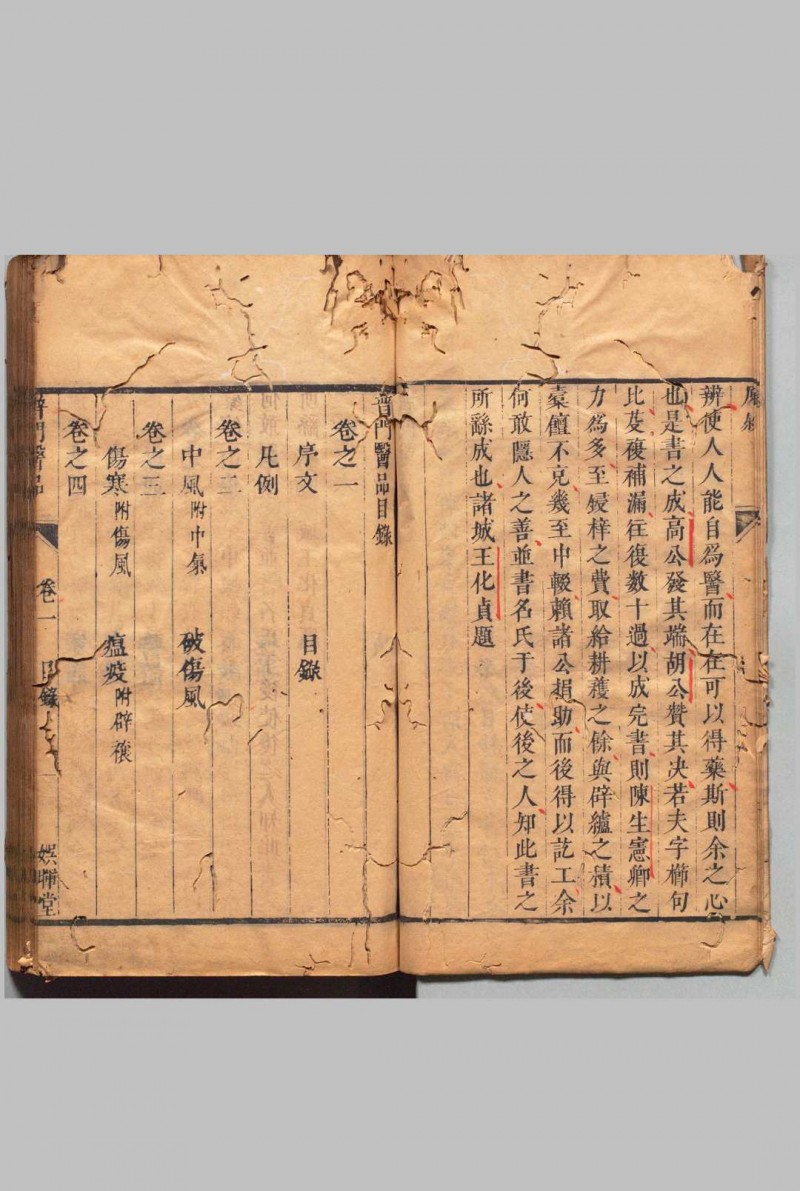 辨使人人能自為醫而在在可以得藥斯則余之心
也是書之成高公發其端胡公贊其决若夫字櫛句
比芟複補漏往復数十過以成完書則陳生憲卿之
力為多至鋟梓之費取給耕穫之餘與辟纑之積以
橐儃不克幾至中輟賴諸公捐助而後得以訖工余
何敢隱人之善並書名氏于後使後之人知此書之
所繇成也諸城王化貞題
普門醫品目錄
卷之一
序文 目錄
凡例
卷之二
中風附中氣 破傷風
卷之三
傷寒附傷風 瘟疫附辟禳
卷之四
普門醫品 卷一 目錄 一 娯暉堂